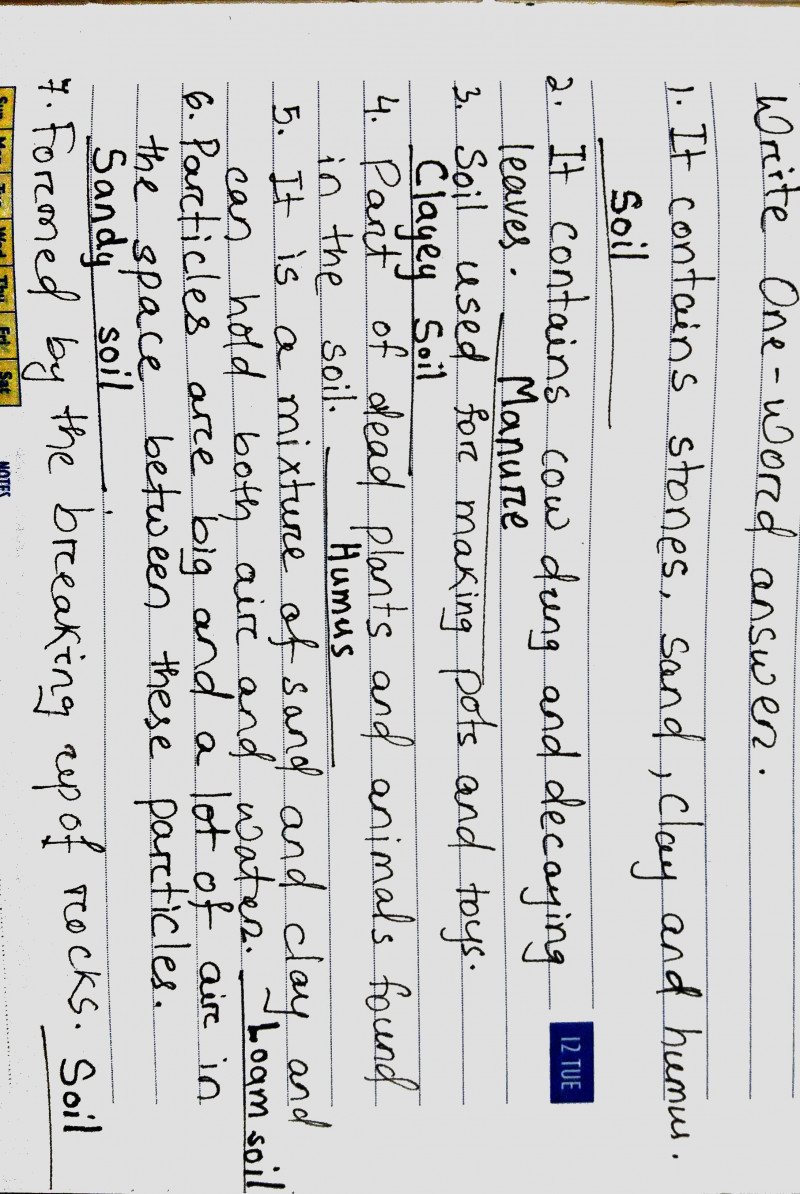 Write One-word answer.
1. It contains stones, sand, clay and humus.
Soil
12 TUE
2. It contains cow dung and decaying
leaves. Manure
3. Soil used for making pots and toys.
Clayey Soil
4. Part of dead plants and animals found
in the soil. Humus
5. It is a mixture of sand and clay and
can hold both air and water. Loam soil
6. Particles are big and a lot of air in
the space between these particles.
Sandy soil
7. Formed by the breaking up of rocks. Soil
Sun Mon Tue Wed Thu Fri Sat
NOTES